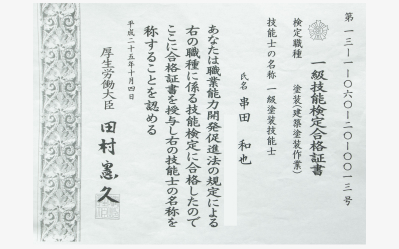 第一三-一-〇六〇-二〇-〇〇一三号
一級技能検定合格証書
検定職種　塗装(建築塗装作業)
技能士の名称　一級塗装技能士
氏名　串田　和也
あなたは職業能力開発促進法の規定による
右の職種に係る技能検定に合格したので
ここに合格証書を授与し右の技能士の名称を
称することを認める
平成二十五年十月四日
厚生労働大臣　田村憲久